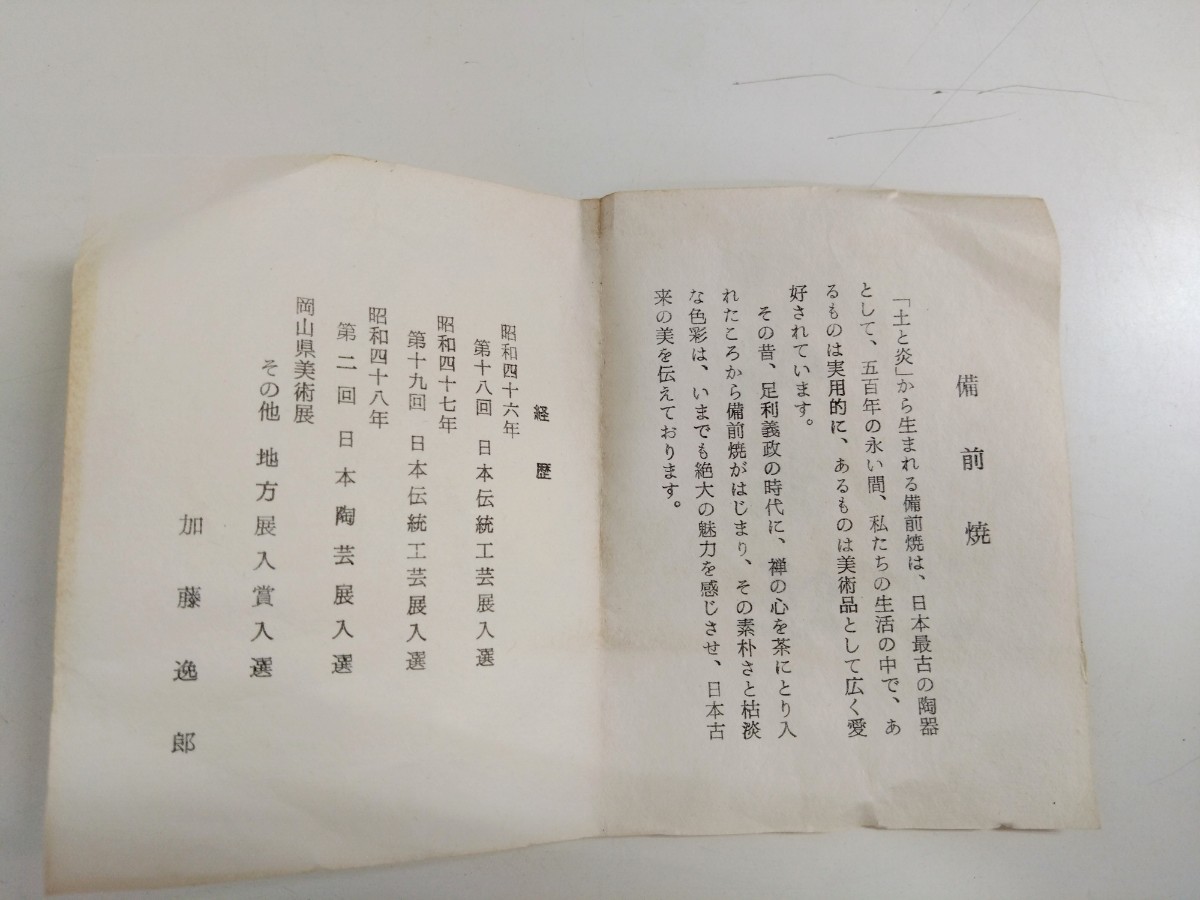 備前焼
「土と炎」から生まれる備前焼は、日本最古の陶器
として、五百年の永い間、私たちの生活の中で、あ
るものは実用的に、あるものは美術品として広く愛
好されています。
その昔、足利義政の時代に、禅の心を茶にとり入
れたころから備前焼がはじまり、その素朴さと枯淡
な色彩は、いまでも絶大の魅力を感じさせ、日本古
来の美を伝えております。
経歴
昭和四十六年
第十八回 日本伝統工芸展入選
昭和四十七年
第十九回 日本伝統工芸展入選
昭和四十八年
第二回 日本陶芸展入選
岡山県美術展
その他 地方展入賞入選
加藤逸郎